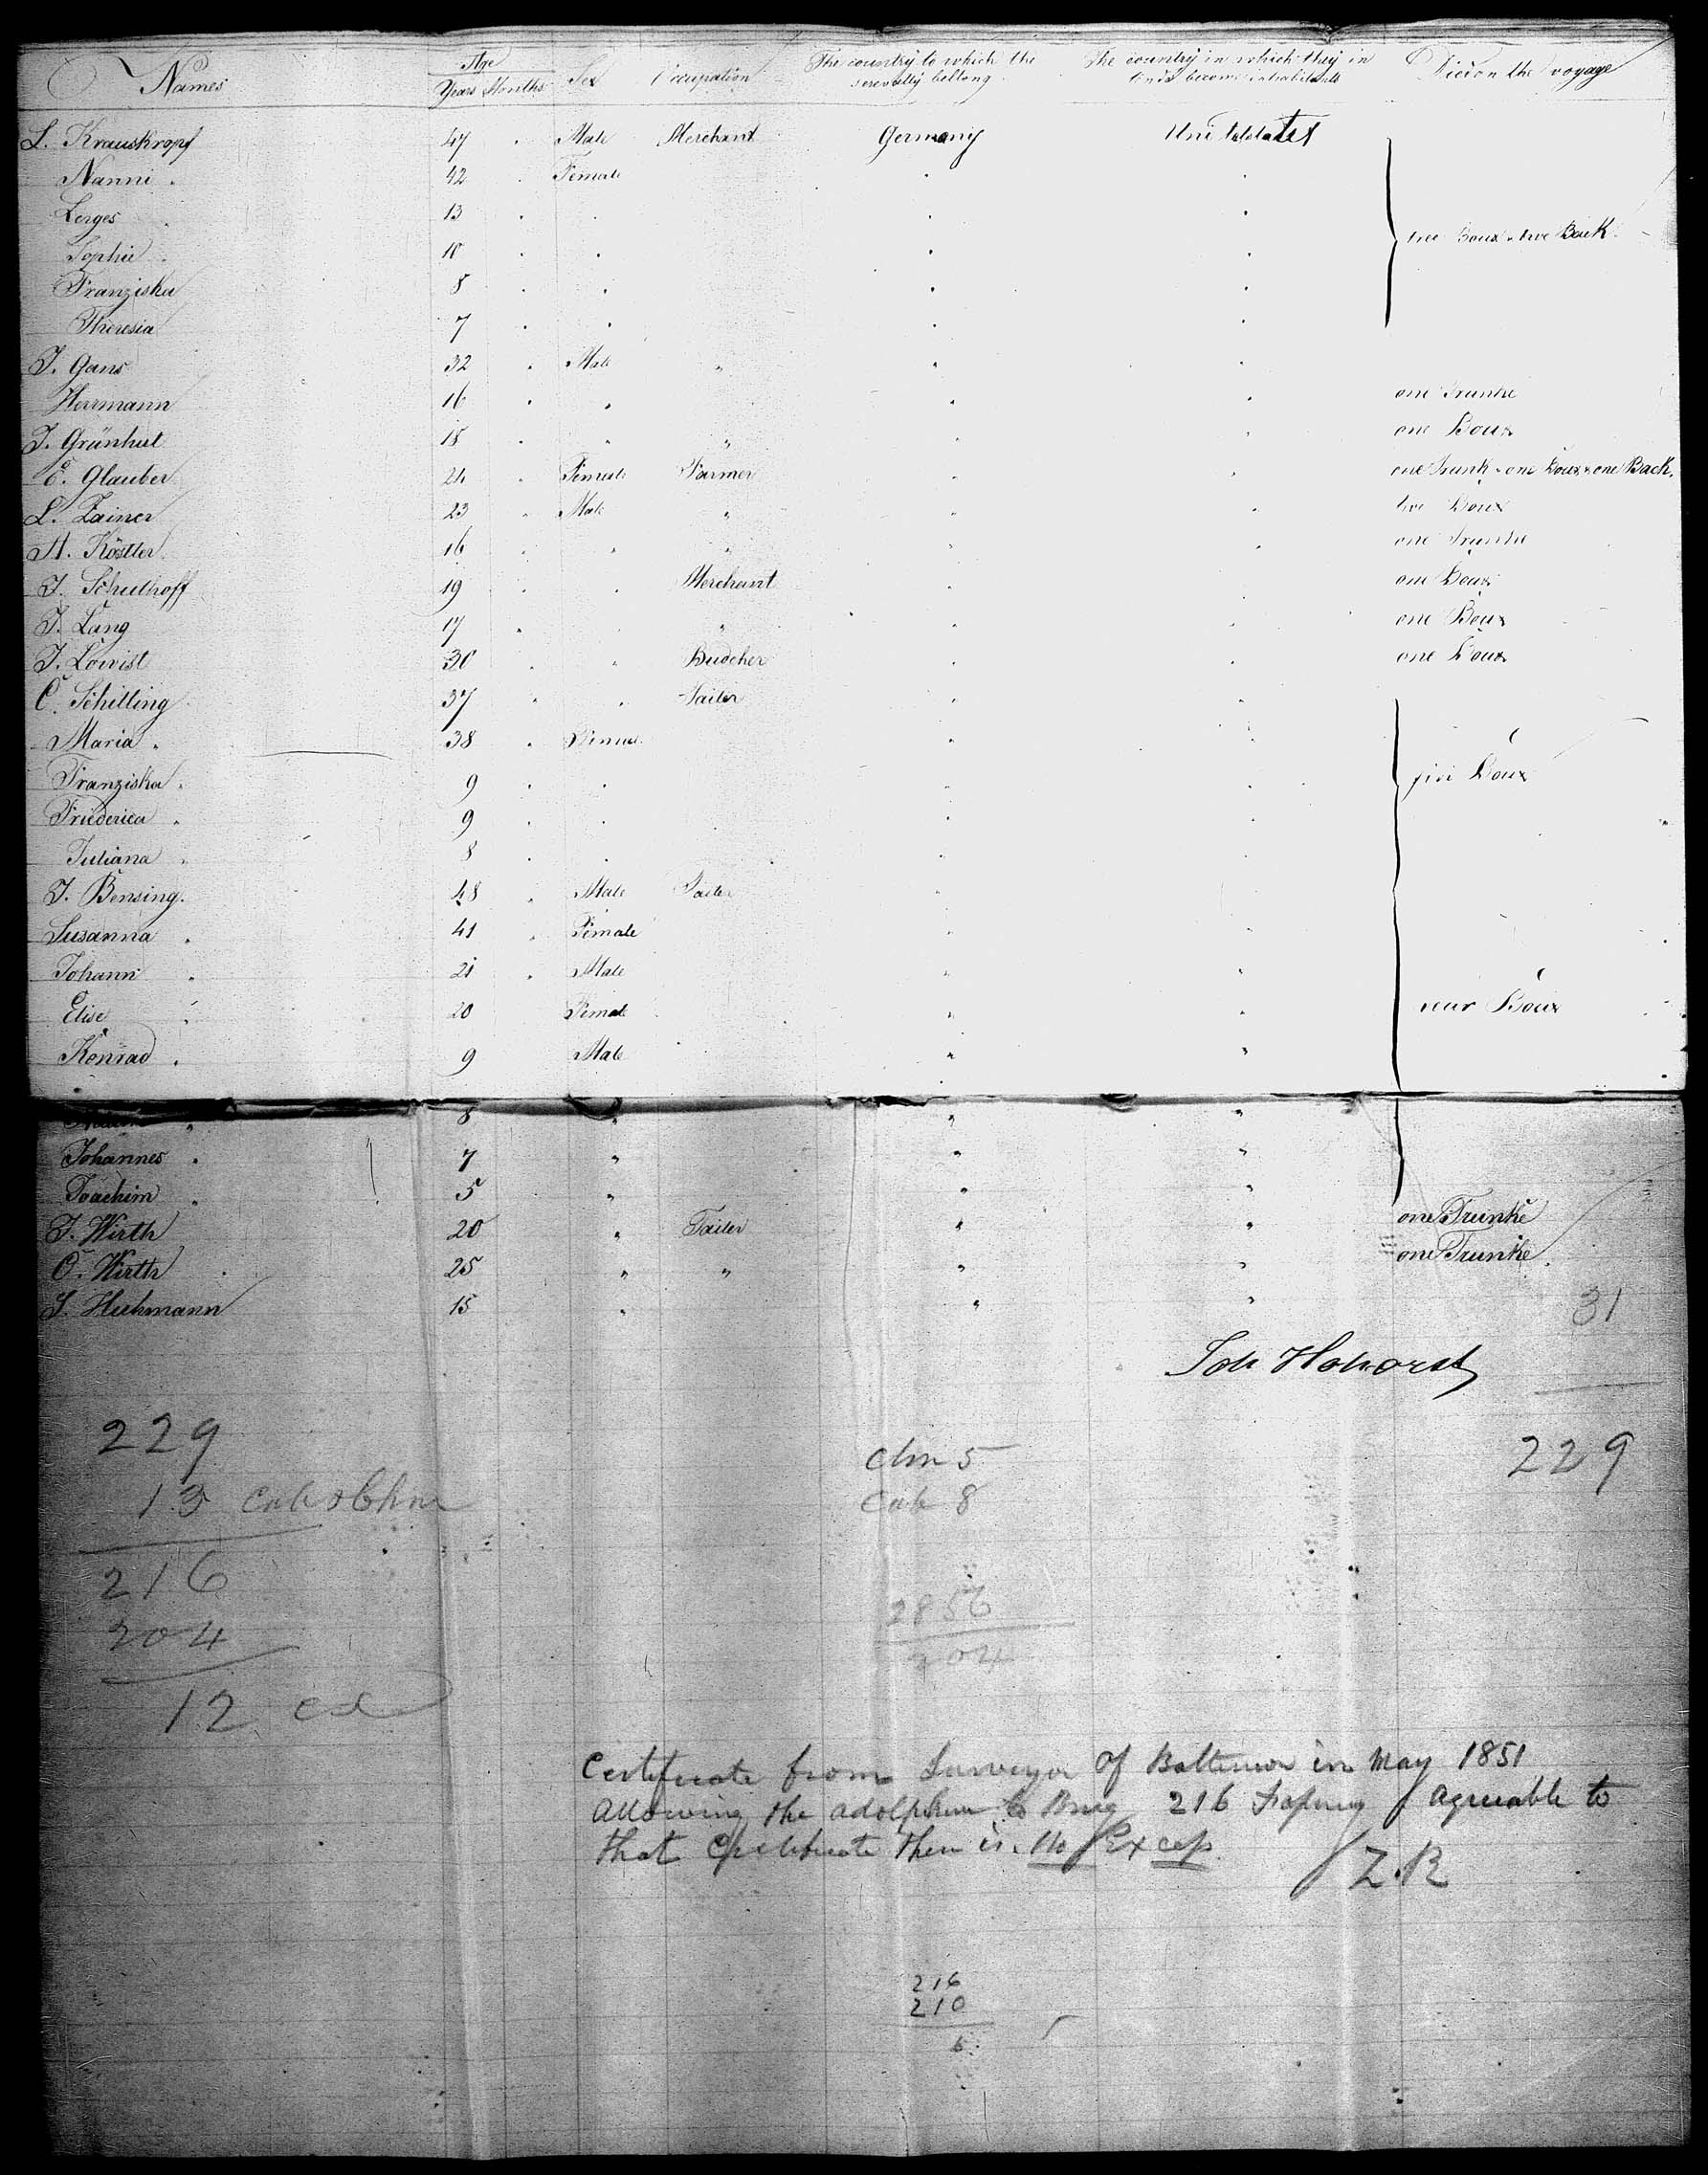 Names Age Years Months Sex Occupation The country to which the severally belong The country in which they in tend become inhabitants Died on the voyage
L. Krauskropf 47 " Male Merchant Germany United states
Nanni " 42 " Female " "
Lerges " 13 " " " "
Sophie " 10 " " " " Boux Back
Franziska 8 " " " "
Theresia 7 " " " "
J. Gans 32 " Male " " "
Herrmann 16 " " " " one Trunke
J. Grünhut 18 " " " " " one Boux
E. Glauber 24 " Female Farmer " " one Trunk & one Boux & one Back.
L. Zainer 23 " Male " " " Boux
A. Köstler 16 " " " " " one Trunke
J. Schulhoff 19 " " Merchant " " one Boux
J. Lang 17 " " " " " one Boux
J. Löwist 30 " " Budcher " " one Boux
C. Schilling 37 " " Tailer " "
Maria " 38 " Female " "
Franziska " 9 " " " " Boux
Friederica " 9 " " " "
Juliana " 8 " " " "
J. Bensing. 48 " Male Tailer " "
Susanna " 41 " Female " "
Johann " 21 " Male " "
Elise " 20 Female " " Boux
Konrad " 9 Male " "
" 8 " " "
Johannes " 7 " " "
Joachim " 5 " " "
J. Wirth 20 " Tailer " " one Trunke
O. Wirth 25 " " " " one Trunke
J. Huhmann 15 " " "
31
Joh Hohorst
229
229
chn 5
13 cab & Chn
cab 8
216
2856
204
204
12 ex
Certificate from Surveyor of Baltimore in May 1851
allowing the adolphine to Bring 216 agreeable to
that Certificate there is no Excess
Z.R
216
210
6